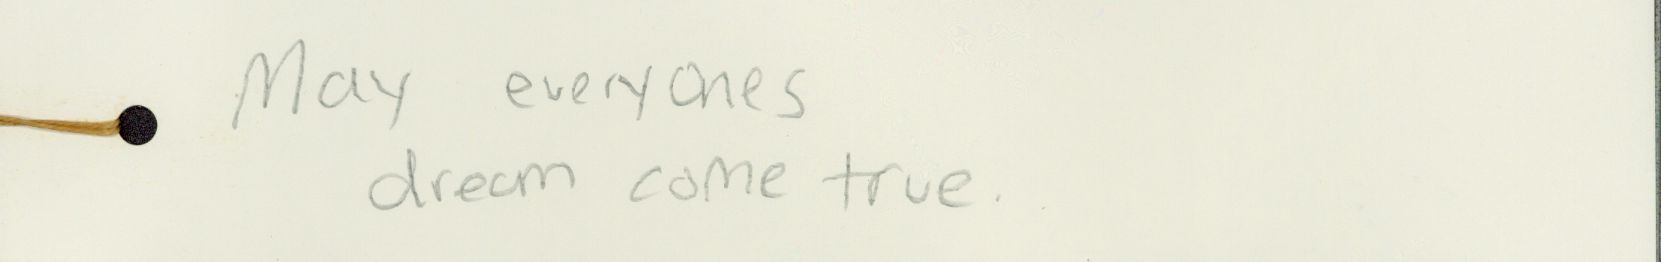 May everyones
dream come true.